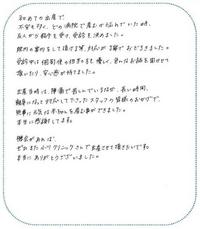 初めての出産で、
不安も多く、どの病院で産むか悩んでいた時、
友人から紹介を受け、受診を決めました。
院内の案内をして頂けた際、対応が丁寧でおどろきました。
受診中は個別体の担当の方も優しく、色々なお話を聞かせて
頂いたり、安心感が持てました。
出産当時は、陣痛で苦しんでいるなか、長い時間、
親身になって対応して下さったスタッフの皆様のおかげで、
無事に元気な赤ちゃんを産む事ができました。
本当に感謝してます。
機会があれば、
ぜひまた クリニックさんで出産させて頂きたいです。
本当にありがとうございました。